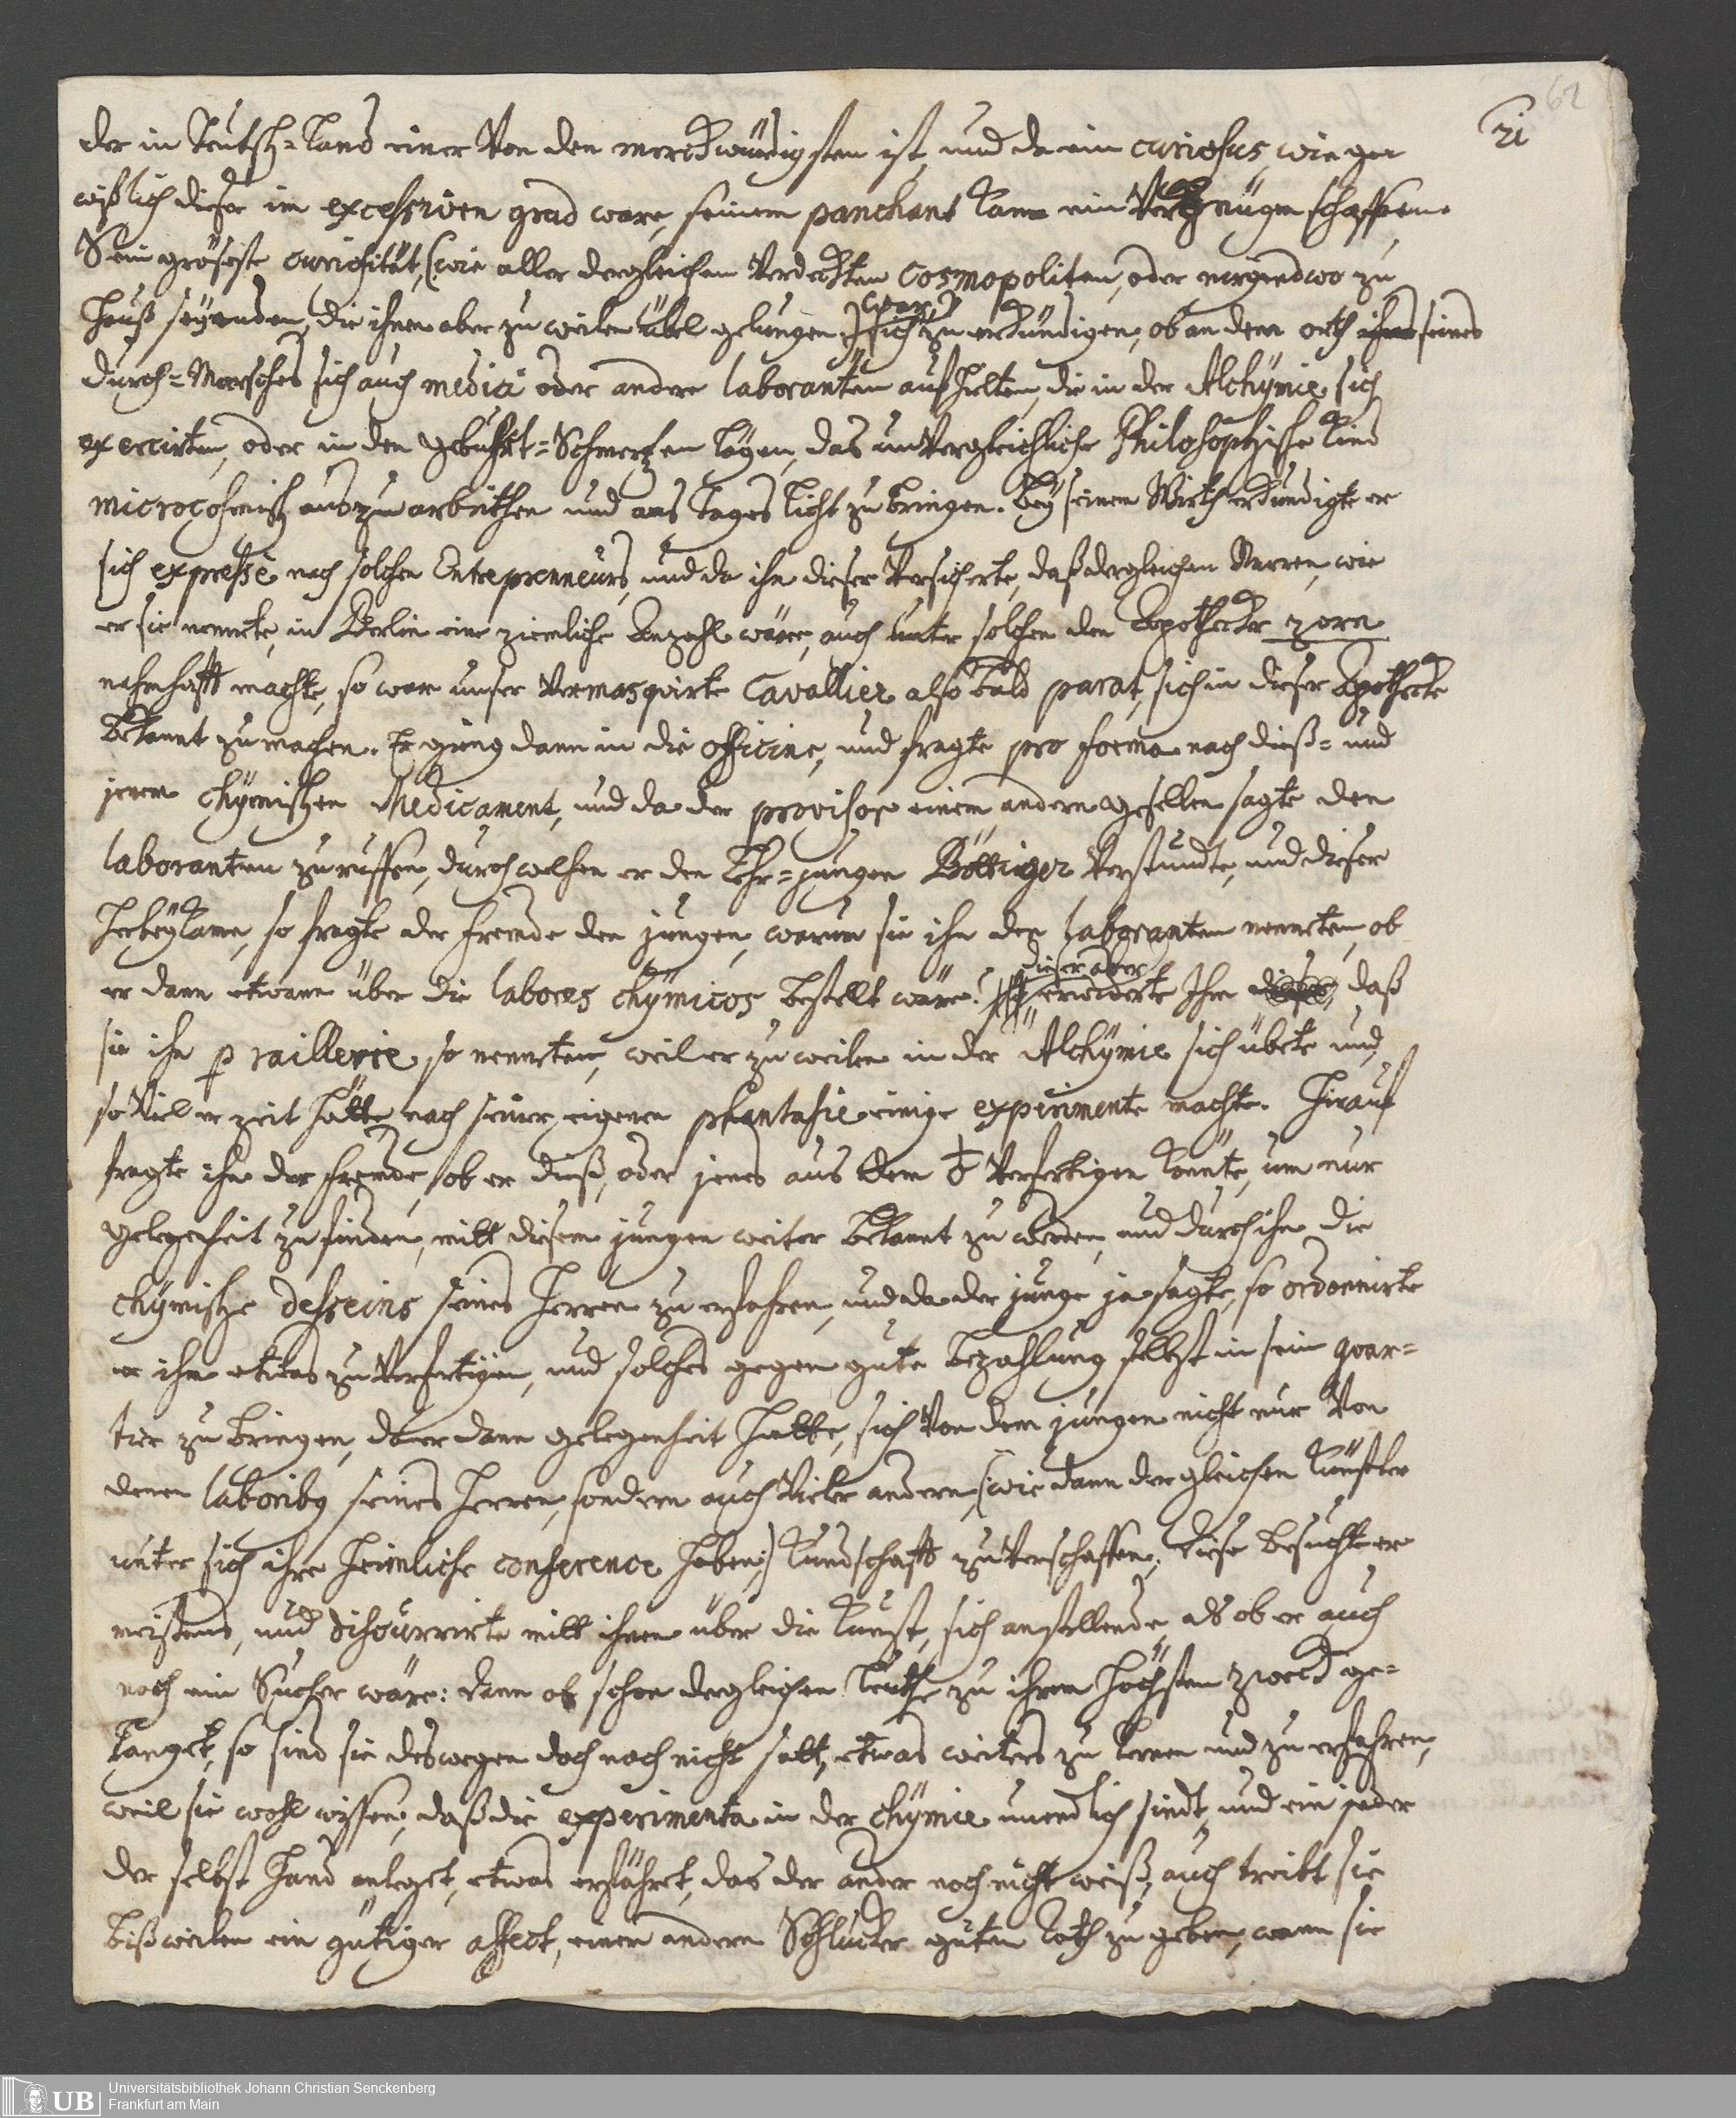 62
21
der in Teutsch=Land einer Von den merckwürdigsten ist, und da ein curiosus, wie ge
wißlich dieser im excessiven grad ware, seinem panchant kann ein Vergnügen schaffen.
Sein gröseste curiosität, (wie aller dergleichen Verdeckten Cosmopoliten, oder nirgendwo zu
Hauß seyenden, die ihnen aber zu weilen übel gelungen) war, sich zu erkündigen, ob an dem orth seines
durch=Marsches sich auch medici oder andere laboranten aufhielten, die in der Alchymie sich
exercirten, oder in den gebuhrt=Schmertzen lägen, das unvergleichliche Philosophische Kind
microcosmisch auszuarbeithen und ans Tages licht zu bringen. Bey seinem Wirth erkundigte er
sich expresse nach solchen Entrepreneurs, und da ihn dieser Versicherte, daß dergleichen Narren, wie
er sie nennete, in Berlin eine ziemliche Anzahl wäre, auch unter solchen den Apothecker zorn
nahmhafft machte, so war unser Vermasquirte Cavallier also bald parat, sich in dieser Apothecke
bekannt zu machen. Er gieng dann in die officine, und fragte pro forma nach dieß= und
jenem chymischen Medicament, und da der provisor einem andern gesellen sagte den
laboranten zu ruffen, durch welchen er den Lehr=jungen Böttiger Verstundte, und dieser
herbeykame, so fragte der fremde den jungen, warum sie ihn den laboranten nenneten, ob
er dann etwann über die labores chymicos bestellt wäre? dieser aber erwiderte Ihm, daß
sie ihn p raillerie so nenneten, weil er zu weilen in der Alchymie sich übete und,
so Viel er zeit hätte, nach seiner eigenen phantasie einige experimente machte. Hierauf
fragte ihn der fremde, ob er dieß, oder jenes aus dem ♁ Verfertigen könnte, um nur
gelegenheit zu finden, mitt diesem jungen weiter bekannt zu werden, und durch ihn die
chymische desseins seines Herren zu erfahren, und da der junge ja sagte, so ordonnirte
er ihm etwas zu Verfertigen, und solches gegen gute bezahlung selbst in sein quar=
tier zu bringen, da er dann gelegenheit hatte, sich Von dem jungen nicht nur Von
denen laboribus seines Herren, sondern auch Vieler andern, (wie dann dergleichen Künstler
unter sich ihre heimliche conference haben,) Kundschafft zu Verschaffen. Diese besuchte er
meistens, und discurrirte mitt ihnen über die Kunst, sich anstellende, als ob er auch
noch ein Sucher wäre: dann ob schon dergleichen leuthe zu ihrem höchsten zweck ge=
langet, so sind sie deswegen doch noch nicht satt, etwas weiters zu lernen und zu erfahren,
weil sie wohl wissen, daß die experimenta in der chymie unendlich sindt, und ein jeder
der selbst Hand anleget, etwas erfähret, das der ander noch nicht weiß, auch treibt sie
bißweilen ein gütiger affect, einem andern Schlucker guten Rath zu geben, wann sie
UB
Universitätsbibliothek Johann Christian Senckenberg
Frankfurt am Main